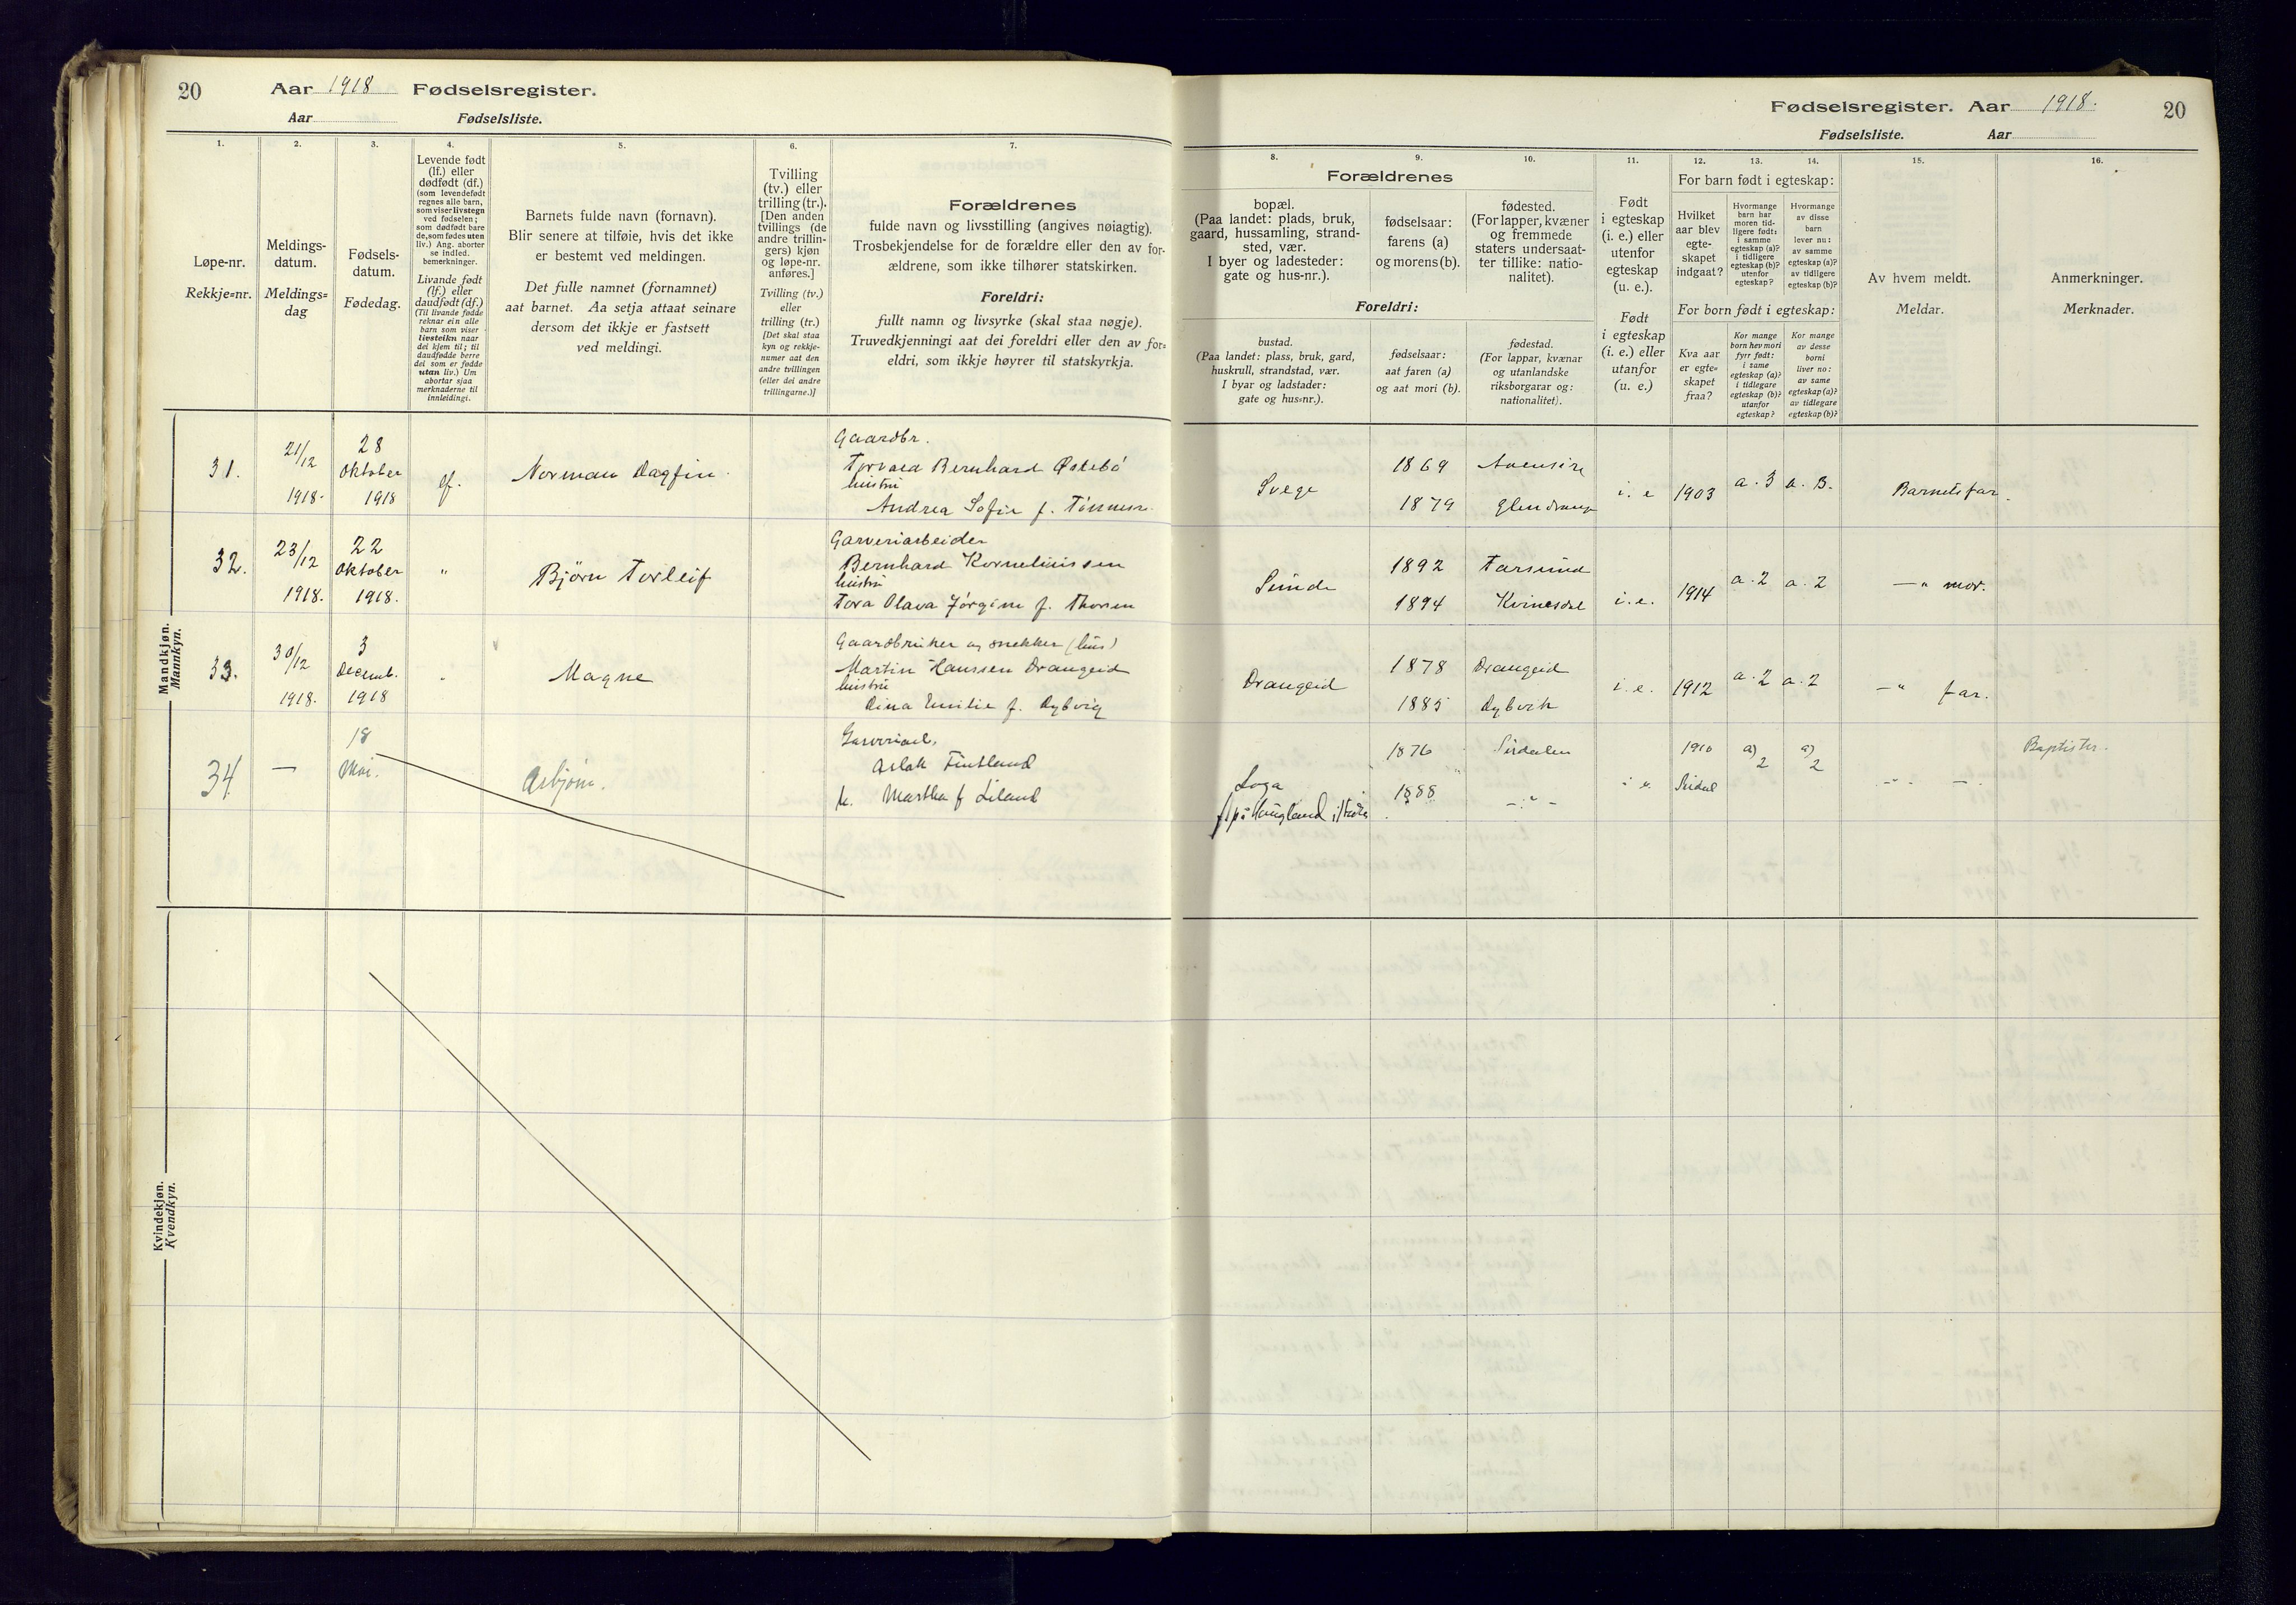 20
Aar 1918 Fødselsregister.
Aar Fødselsliste.
1.
Løpe-nr.
Rekkje=nr.
2.
Meldings-
datum.
Meldings=
dag
3.
Fødsels-
datum.
Fødedag.
4.
Levende født
(lf.) eller
dødfødt (df.)
(som levendefødt
regnes alle barn,
som viser livstegn
ved fødselen;
som dødfødt bare
de, som fødes uten
liv.) Ang. aborter
se indled.
bemerkninger.
Livande født
(lf.) eller
daudfødt (df.)
(Til livande fødde
reknar ein alle
barn som viser
livsteikn naar
dei kjem til; til
daudfødde berre
dei som er fødde
utan liv.) Um
abortar sjaa
merknaderne til
innleidingi.
5.
Barnets fulde navn (fornavn).
Blir senere at tilføie, hvis det ikke
er bestemt ved meldingen.
Det fulle namnet (fornamnet)
aat barnet. Aa setja attaat seinare
dersom det ikkje er fastsett
ved meldingi.
6.
Tvilling
(tv.) eller
trilling (tr.).
[Den anden
tvillings (de
andre trillin-
gers) kjøn
og løpe-nr.
anføres.]
Tvilling (tv.)
eller
trilling (tr.)
[Det skal staa
kyn og rekkje-
numer aat den
andre tvillingen
(eller dei andre
trillingarne.)]
7.
Forældrenes
fulde navn og livsstilling (angives nøiagtig).
Trosbekjendelse for de forældre eller den av for-
ældrene, som ikke tilhører statskirken.
Foreldri:
fullt namn og livsyrke (skal staa nøgje).
Truvedkjenningi aat dei foreldri eller den av for=
eldri, som ikkje høyrer til statskyrkja.
Mandkjøn.
Mannkyn.
31.
21/12
1918.
28
Oktober
1918
lf.
Norman Dagfin.
Gaardbr.
Torvald Bernhard Østebö
hustru
Andrea Sofie f. Tönnesn.
32.
23/12
1918.
22
Oktober
1918.
"
Björn Torleif
Garveriarbeider
Bernhard Korneliussen
hustru
Tora Olava Jörgine f. Thorsen
33.
30/12
1918.
3
Decemb.
1918
"
Magne
Gaardbruker og snekker (hus)
Martin Hanssen Drangeid
hustru
Dina Emilie f. Dybvig
34
—
18
Mai.
Asbjørn.
Aslak Fintland
h. Martha f Liland
Kvindekjøn.
Kvendkyn.
Fødselsregister. Aar 1918.
20
Fødselsliste. Aar
8.
Forældrenes
bopæl.
(Paa landet: plads, bruk,
gaard, hussamling, strand-
sted, vær.
I byer og ladesteder:
gate og hus-nr.).
9.
fødselsaar:
farens (a)
og morens (b).
10.
fødested.
(For lapper, kvæner
og fremmede
staters undersaat-
ter tillike: natio-
nalitet).
Foreldri:
bustad.
(Paa landet: plass, bruk, gard,
huskrull, strandstad, vær.
I byar og ladstader:
gate og hus=nr.).
fødselsaar:
aat faren (a)
og aat mori (b).
fødestad.
(For lappar, kvænar
og utanlandske
riksborgarar og:
nationalitet).
11.
Født
i egteskap
(i. e.) eller
utenfor
egteskap
(u. e.).
Født
i egteskap
(i. e.) eller
utanfor
(u. e.)
12.
13.
14.
For barn født i egteskap:
Hvilket
aar blev
egte-
skapet
indgaat?
Hvormange
barn har
moren tid-
ligere født:
i samme
egteskap (a)?
i tidligere
egteskap (b)?
utenfor
egteskap?
Hvormange
av disse
barn
lever nu:
av samme
egteskap (a)?
av tidligere
egteskap (b)?
For born født i egteskap:
Kva aar
er egte=
skapet
fraa?
Kor mange
born hev mori
fyrr født:
i same
egteskap (a)?
i tidlegare
egteskap (b)?
utanfor
egteskap?
Kor mange
av desse
borni
liver no:
av same
egteskap (a)?
av tidlegare
egteskap (b)?
15.
Av hvem meldt.
Meldar.
16.
Anmerkninger.
Merknader.
Svege
1869
1879
i. e 1903 a. 3 a. 3. Barnets far.
Sunde
1892 Farsund
1894 Kvinesdal
i. e. 1914 a. 2 a. 2 —„ mor.
Drangeid
1878 Drangeid
1885 Dybvik
i. e. 1912 a. 2 a. 2 —„ far.
Loga
1876 Sirdalen
1888 —„—
1910
Sirdal
a) 2
a) 2
Baptister.